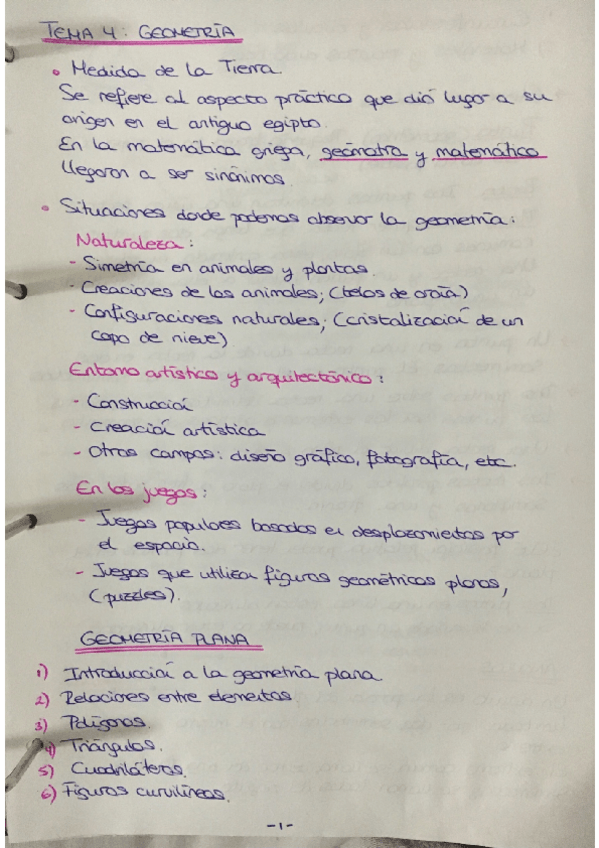 TEMA 4: GEOMETRÍA
• Medida de la Tierra.
Se refiere al aspecto práctico que dió lugar a su
origen en el antiguo egipto.
En la matemática griega, geómetra y matemático
llegaron a ser sinónimos.
• Situaciones donde podemos observar la geometría:
Naturaleza:
- Simetría en animales y plantas.
- Creaciones de los animales; (telas de araña)
- Configuraciones naturales; (cristalización de un
copo de nieve)
Entorno artístico y arquitectónico:
- Construcción
- Creación artística
- Otros campos: diseño gráfico, fotografía, etc.
En los juegos:
- Juegos populares basados en desplazamientos por
el espacio.
- Juegos que utilizan figuras geométricas planas,
(puzzles).
GEOMETRÍA PLANA
1) Introducción a la geometría plana
2) Relaciones entre elementos.
3) Polígonos.
4) Triángulos.
5) Cuadriláteros.
6) Figuras curvilíneas.
-1-